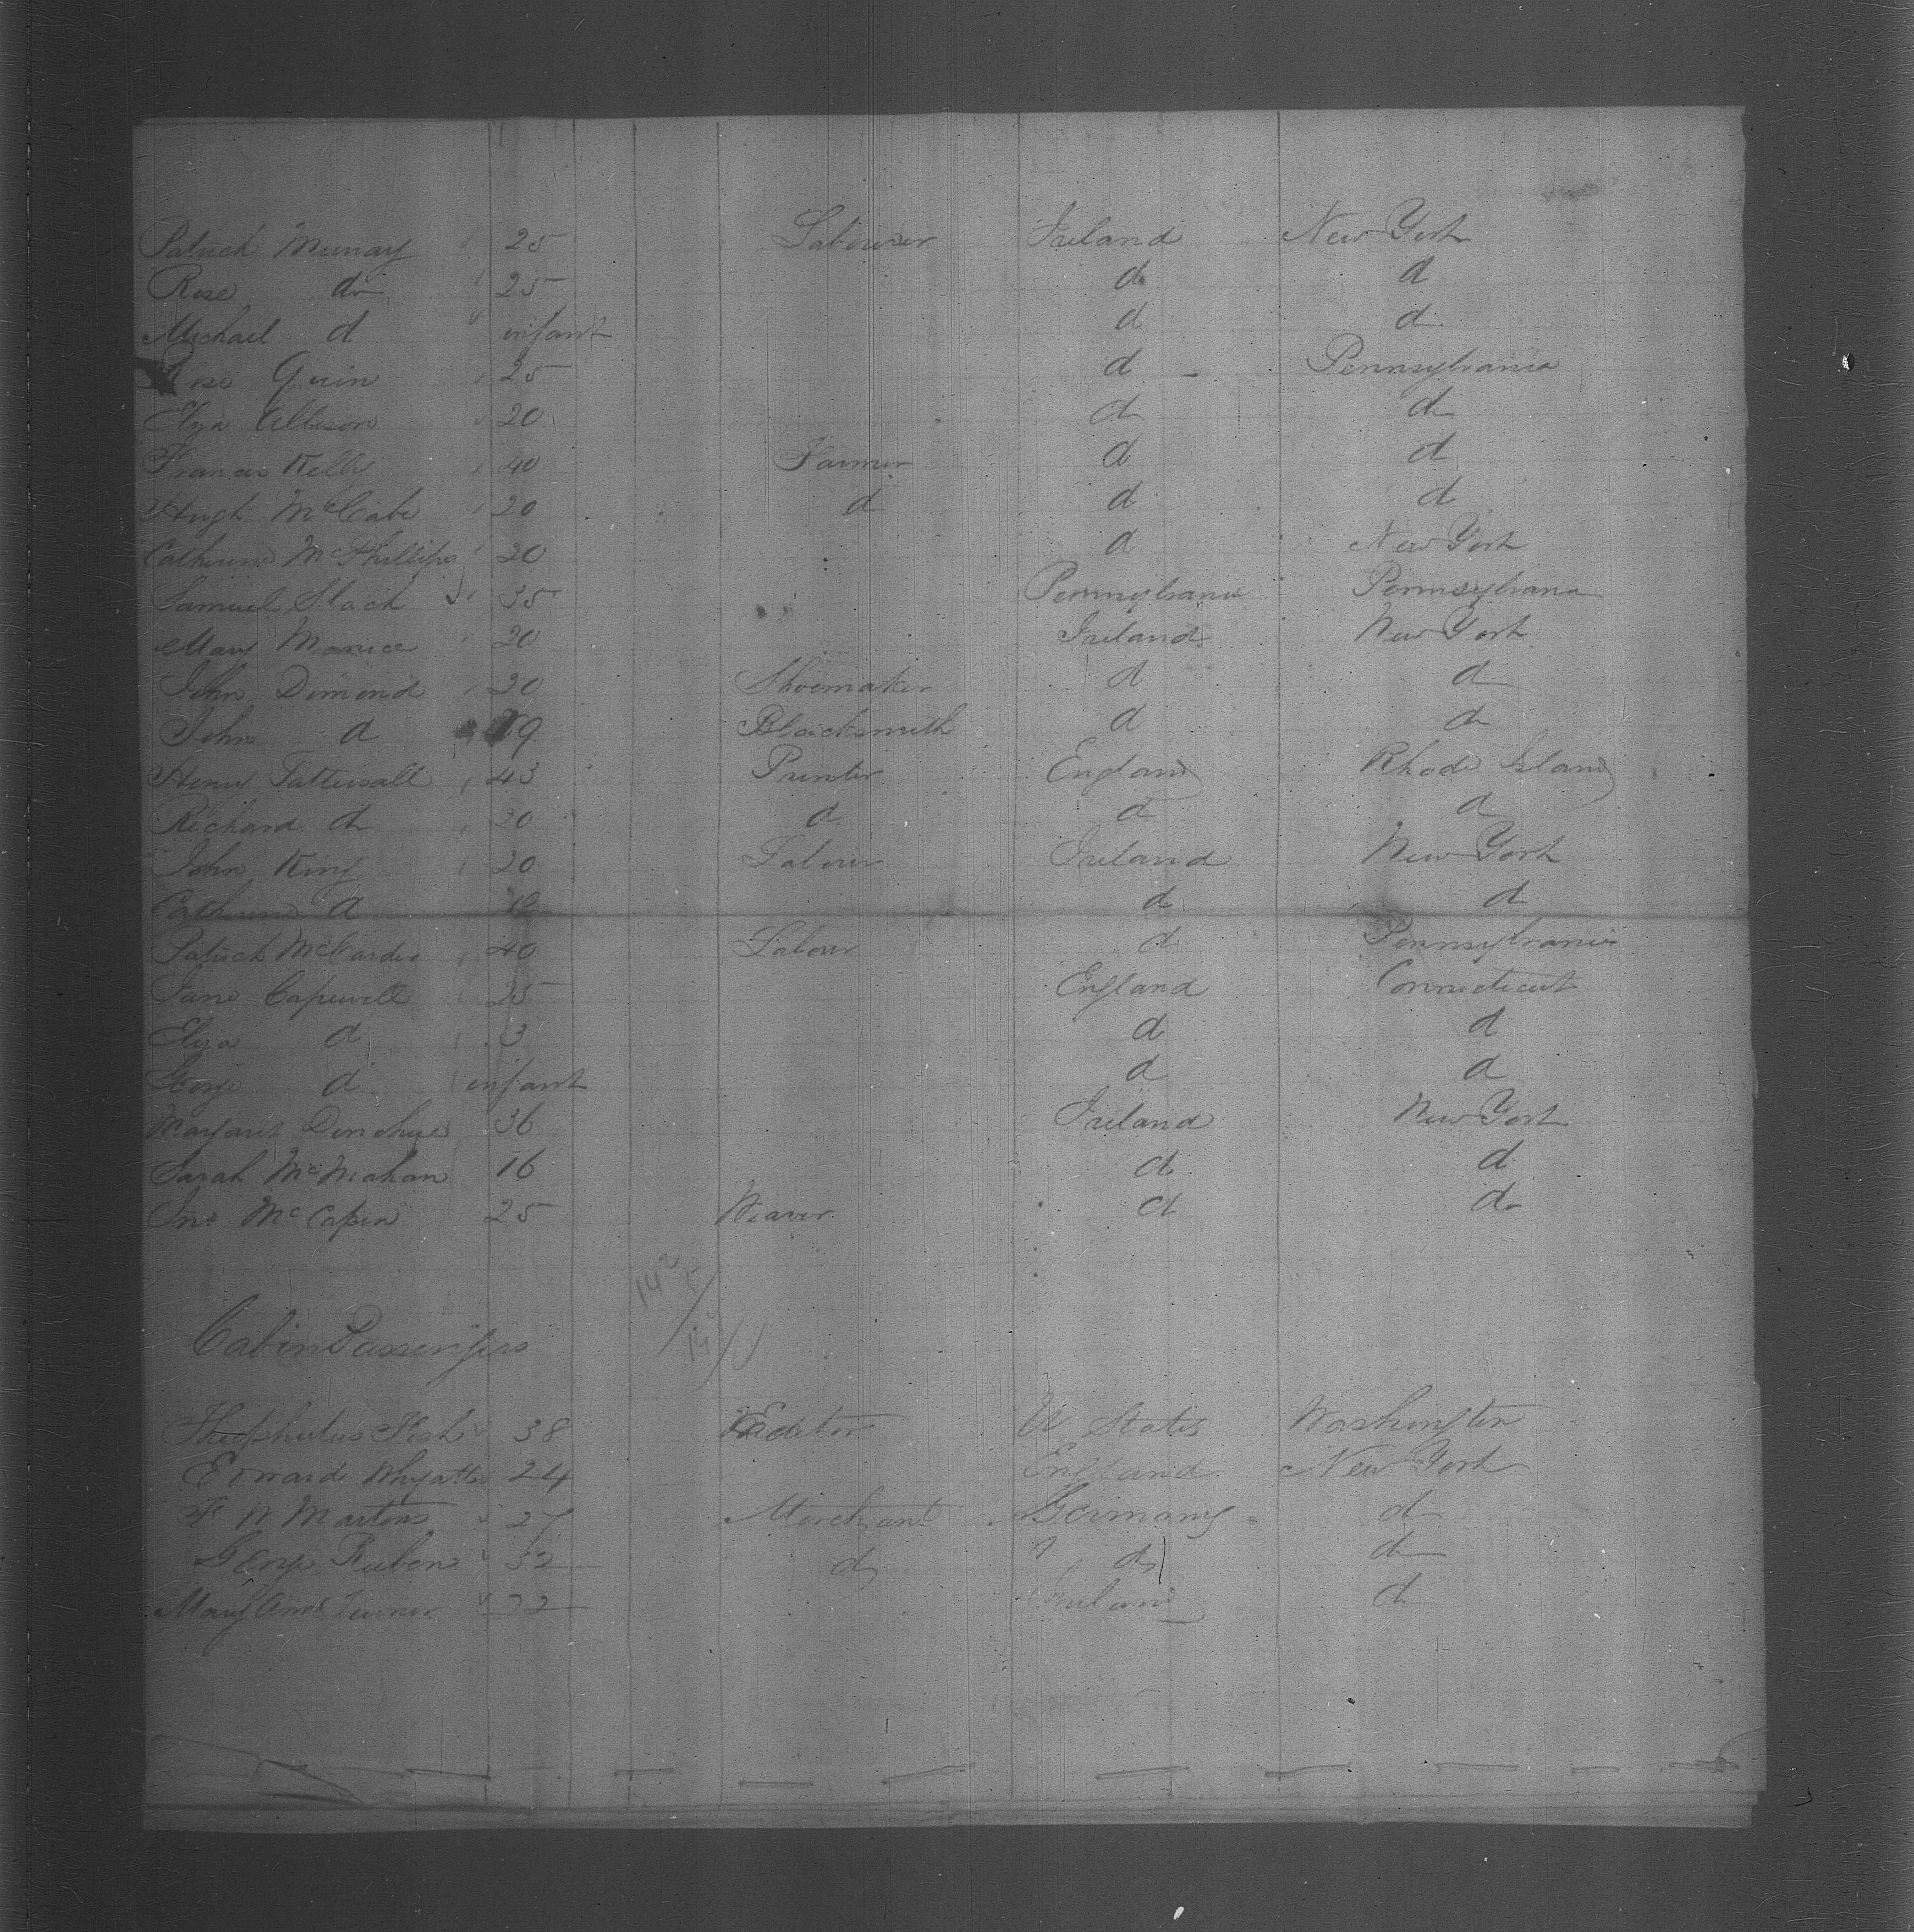 Patrick Murray 25 Labourer Ireland New York
Rose do 25 d d
Michael d infant d d
Rose Quin 25 d Pennsylvania
Eliza Allison 20 d d
Francis Kelly 40 Farmer d d
Hugh McCabe 20 d d d
Catherine McPhillips 20 d New York
Samuel Slack 35 Pennsylvania Pennsylvania
Mary Monice 20 Ireland New York
John Dimond 20 Shoemaker d d
John d 19 Blacksmith d d
Henry Tattersall 43 Printer England Rhode Island
Richard d 20 d d d
John King 20 Labour Ireland New York
Catherine d d d
Patrick McCardes 40 Labour d Pennsylvania
Jane Capewell 25 England Connecticut
Eliza d 3 d d
George d infant d d
Margaret Donohue 36 Ireland New York
Sarah McMahan 16 d d
Jno McCapin 25 Weaver d do
142
Cabin Passengers
Theophulus Fisk 38 Editor U States Washington
Edward Whyatt 24 England New York
N Martens 27 Merchant Germany d
George Ruben 32 d d d
Mary Ann Turner 22 Ireland d